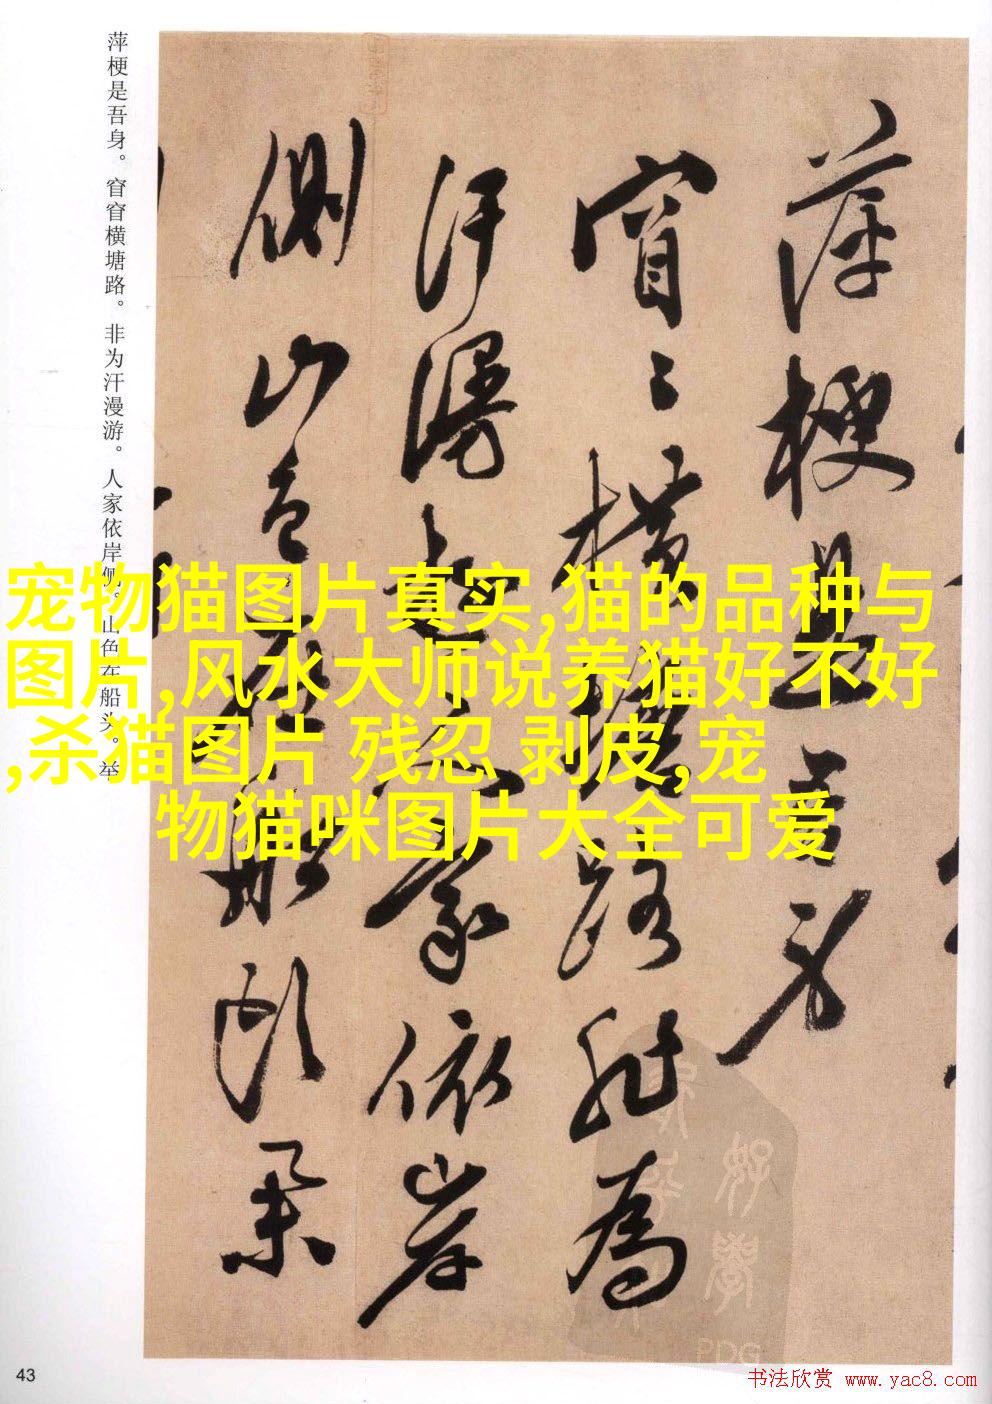 萍梗是吾身。窅窅横塘路。非为汗漫游。人家依岸侧。山色在船头。举
萍梗是吾身
窅〻横塘路非为
汗漫游人家依岸
侧山色在船头举
宠物猫图片真实,猫的品种与
图片,风水大师说养猫好不好
,杀猫图片 残忍 剥皮,宠
物猫咪图片大全可爱
好学
PDG
43
书法欣赏 www.yac8.com